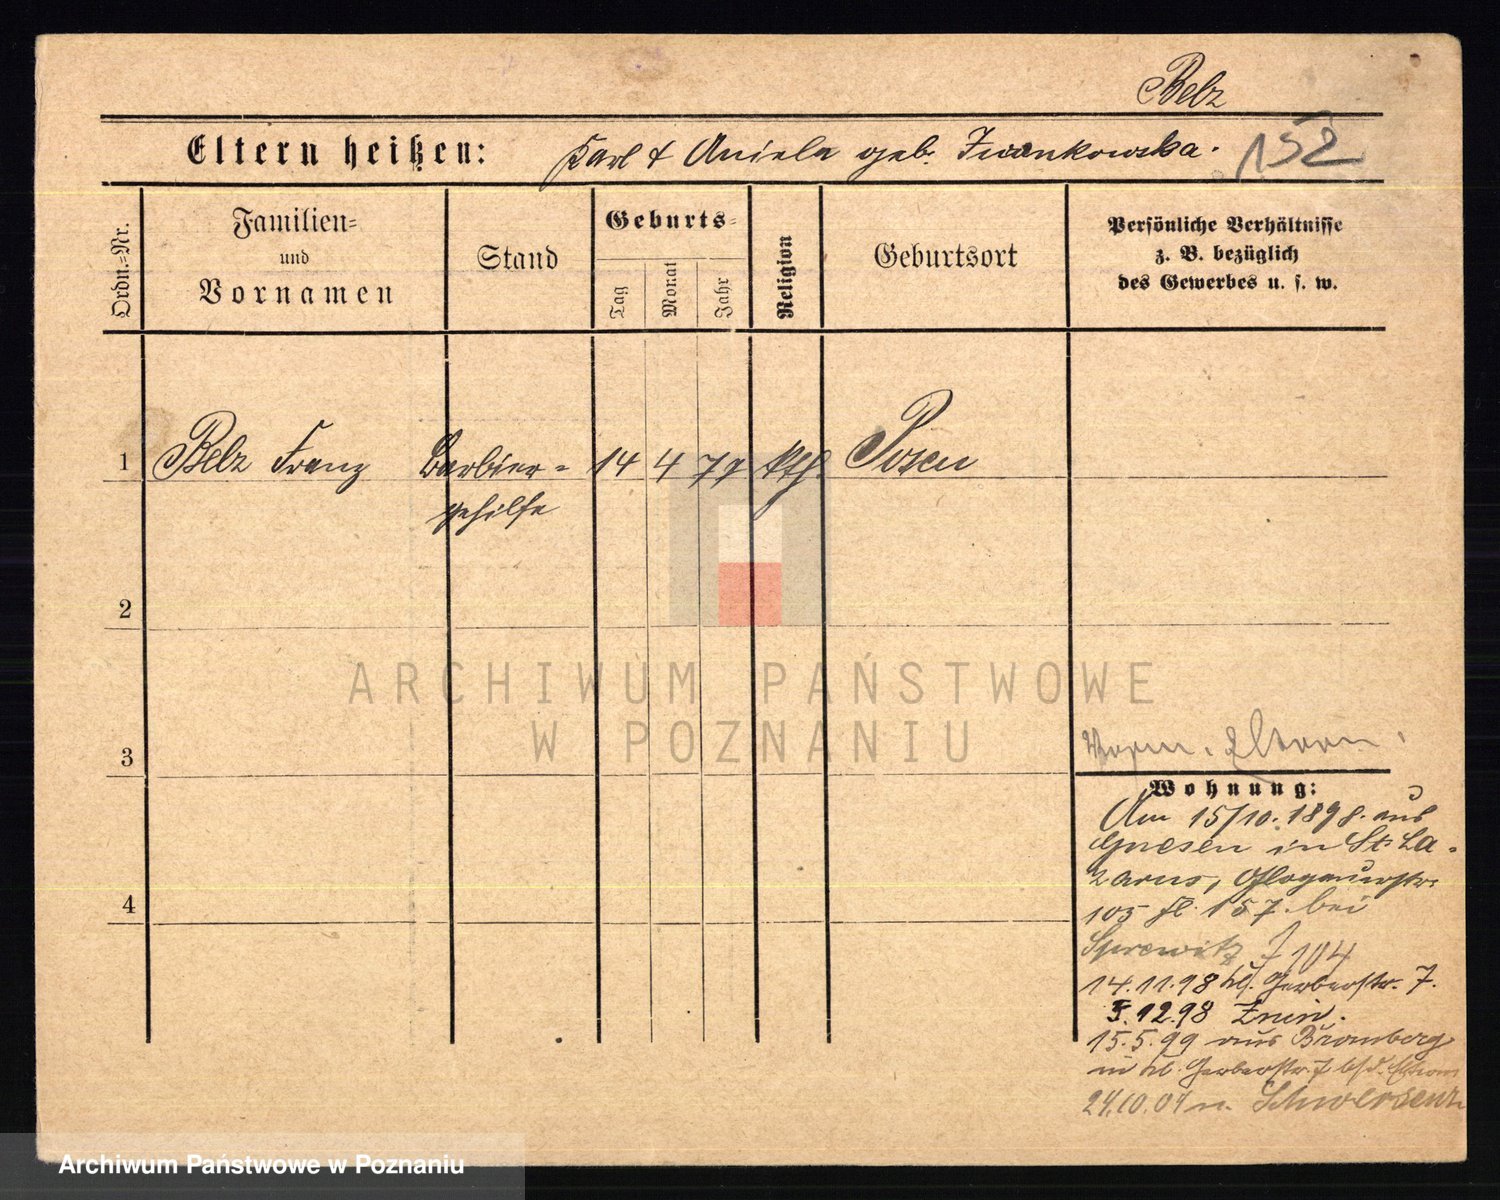 Belz
Eltern heißen: Karl & Aniela geb. Iwankowska.
152
Ordn.=Nr.
Familien=
und
Vornamen
Stand
Geburts=
Tag
Monat
Jahr
Religion
Geburtsort
Persönliche Verhältnisse
z. B. bezüglich
des Gewerbes u. s. w.
1 Belz Franz Barbier= 14 4 77 kth. Posen
gehilfe
2
3
4
Eltern.
Wohnung:
Am 15/10. 1898. aus
Gnesen in St. La-
zarus, Glogauerstr.
105 fl. 157. bei
104
14.11.98 kl. Gerberstr. 7.
5.12.98 Znin.
15.5.99 aus Bromberg
in kl. Gerberstr. 7 b/d. Eltern
24.10.01 n. Schwersenz
ARCHIWUM PAŃSTWOWE
W POZNANIU
Archiwum Państwowe w Poznaniu